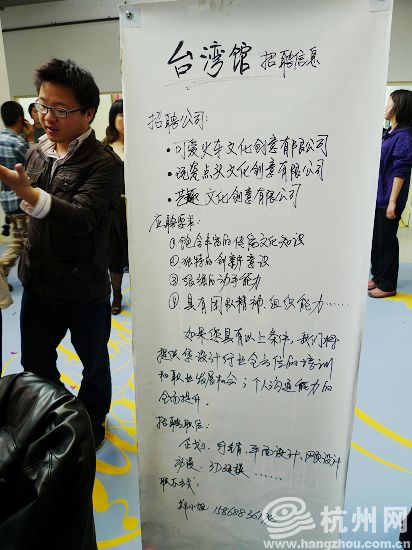 台湾馆 招聘信息
招聘公司:
•可爱火车文化创意有限公司
•顽石点头文化创意有限公司
•芸廷文化创意有限公司
应聘要求:
①饱含丰富的传统文化知识
②独特的创新意识
③很强的动手能力
④具有团队精神组织能力……
如果您具有以上条件,我们将
提供您设计行业全方位的培训
和职业发展机会;个人沟通能力的
全面提升。
招聘职位:
企划、行销、平面设计、网页设计
动漫、3D建模……
联系方式:
郑小姐 15868836
杭州网
www.hangzhou.com.cn